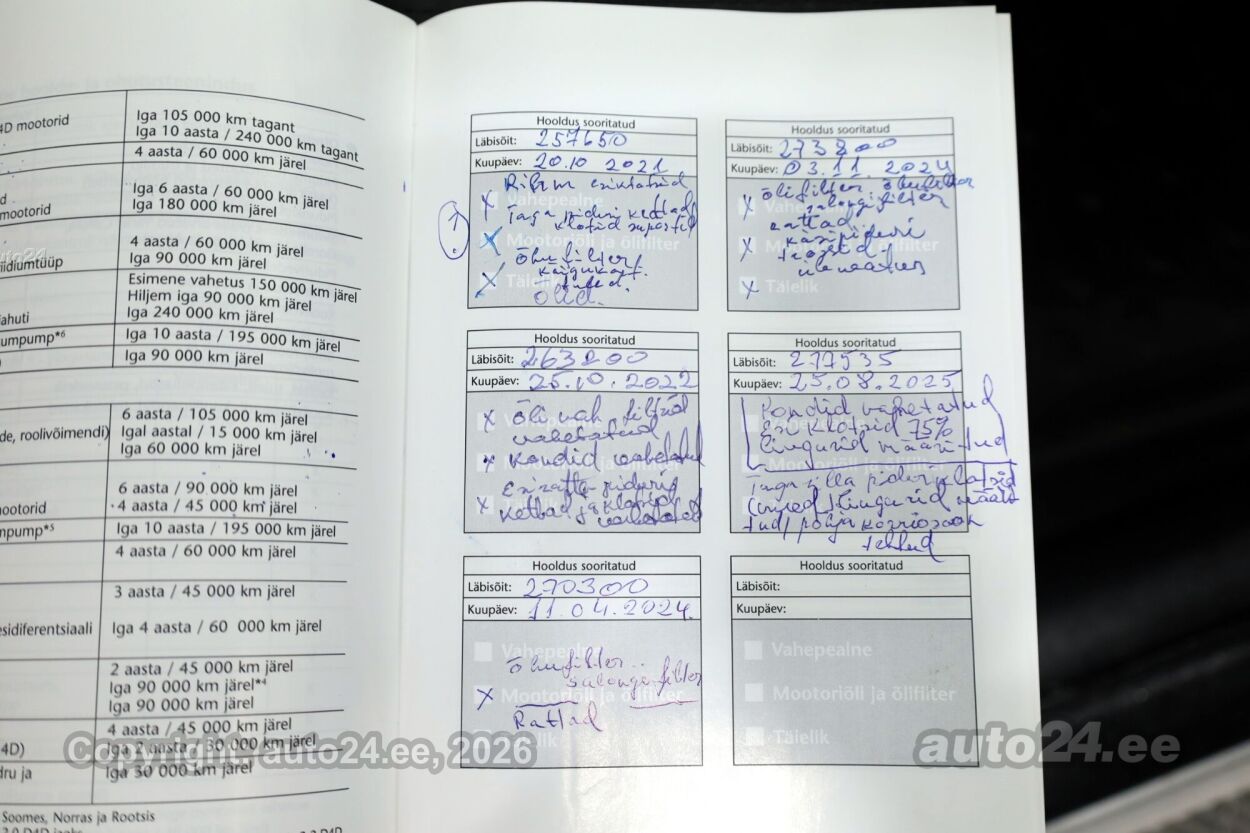 4D mootorid
Iga 105 000 km tagant
Iga 10 aasta / 240 000 km tagant
4 aasta / 60 000 km järel
mootorid
Iga 6 aasta / 60 000 km järel
Iga 180 000 km järel
iidiumtüüp
4 aasta / 60 000 km järel
Iga 90 000 km järel
Esimene vahetus 150 000 km järel
Hiljem iga 90 000 km järel
Iga 240 000 km järel
jahuti
umpump*6
Iga 10 aasta / 195 000 km järel
Iga 90 000 km järel
6 aasta / 105 000 km järel
de, roolivõimendi)
Igal aastal / 15 000 km järel
Iga 60 000 km järel
6 aasta / 90 000 km järel
ootorid
4 aasta / 45 000 km järel
mpump*5
Iga 10 aasta / 195 000 km järel
4 aasta / 60 000 km järel
3 aasta / 45 000 km järel
esidiferentsiaali
Iga 4 aasta / 60 000 km järel
2 aasta / 45 000 km järel
Iga 90 000 km järel*4
Iga 90 000 km järel
4 aasta / 45 000 km järel
4D)
Iga 2 aasta / 30 000 km järel
dru ja
Iga 30 000 km järel
Soomes, Norras ja Rootsis
Hooldus sooritatud
Läbisõit: 257650
Kuupäev: 20.10 2021
Vahepealne
Taga piduri kettad
klotsid
Mootoriõli ja õlifilter
Õhufilter
Täielik
Õlid.
Hooldus sooritatud
Läbisõit: 263200
Kuupäev: 25.10.2022
Õli vah filtrid
vahetatud
Kondid vahetatud
Esiratta pidurid
kettad ja klotsid
vahetatud
Hooldus sooritatud
Läbisõit: 270300
Kuupäev: 11.04.2024.
Vahepealne
Õhufilter..
salongifilter
Mootoriõli ja õlifilter
Rattad
Täielik
Hooldus sooritatud
Läbisõit: 273200
Kuupäev: 03.11.2024
õlifilter, õhufilter
salongifilter
rattad
käsipiduri
trossid
Täielik
Hooldus sooritatud
Läbisõit: 277535
Kuupäev: 25.08.2025
Kondid vahetatud
Esi klotsid 75%
liugurid määritud
Taga silla piduriklotsid
(uued) liugurid määri
tud/ põhja
tehtud
Hooldus sooritatud
Läbisõit:
Kuupäev:
Vahepealne
Mootoriõli ja õlifilter
Täielik
Copyright auto24.ee, 2026
auto24.ee